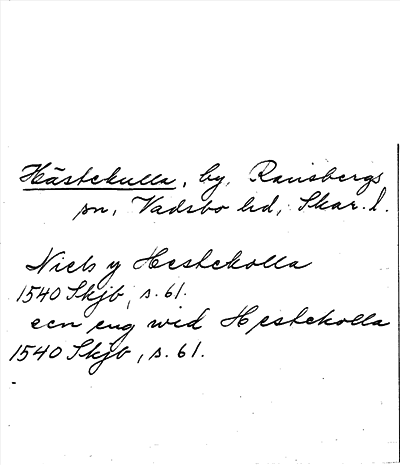 Hästekulla, by, Ransbergs
sn, Vadsbo hd, Skar. l.
Niels y Hestekolla
1540 Skjb, s. 61.
een eng wid Hestekolla
1540 Skjb, s. 61.